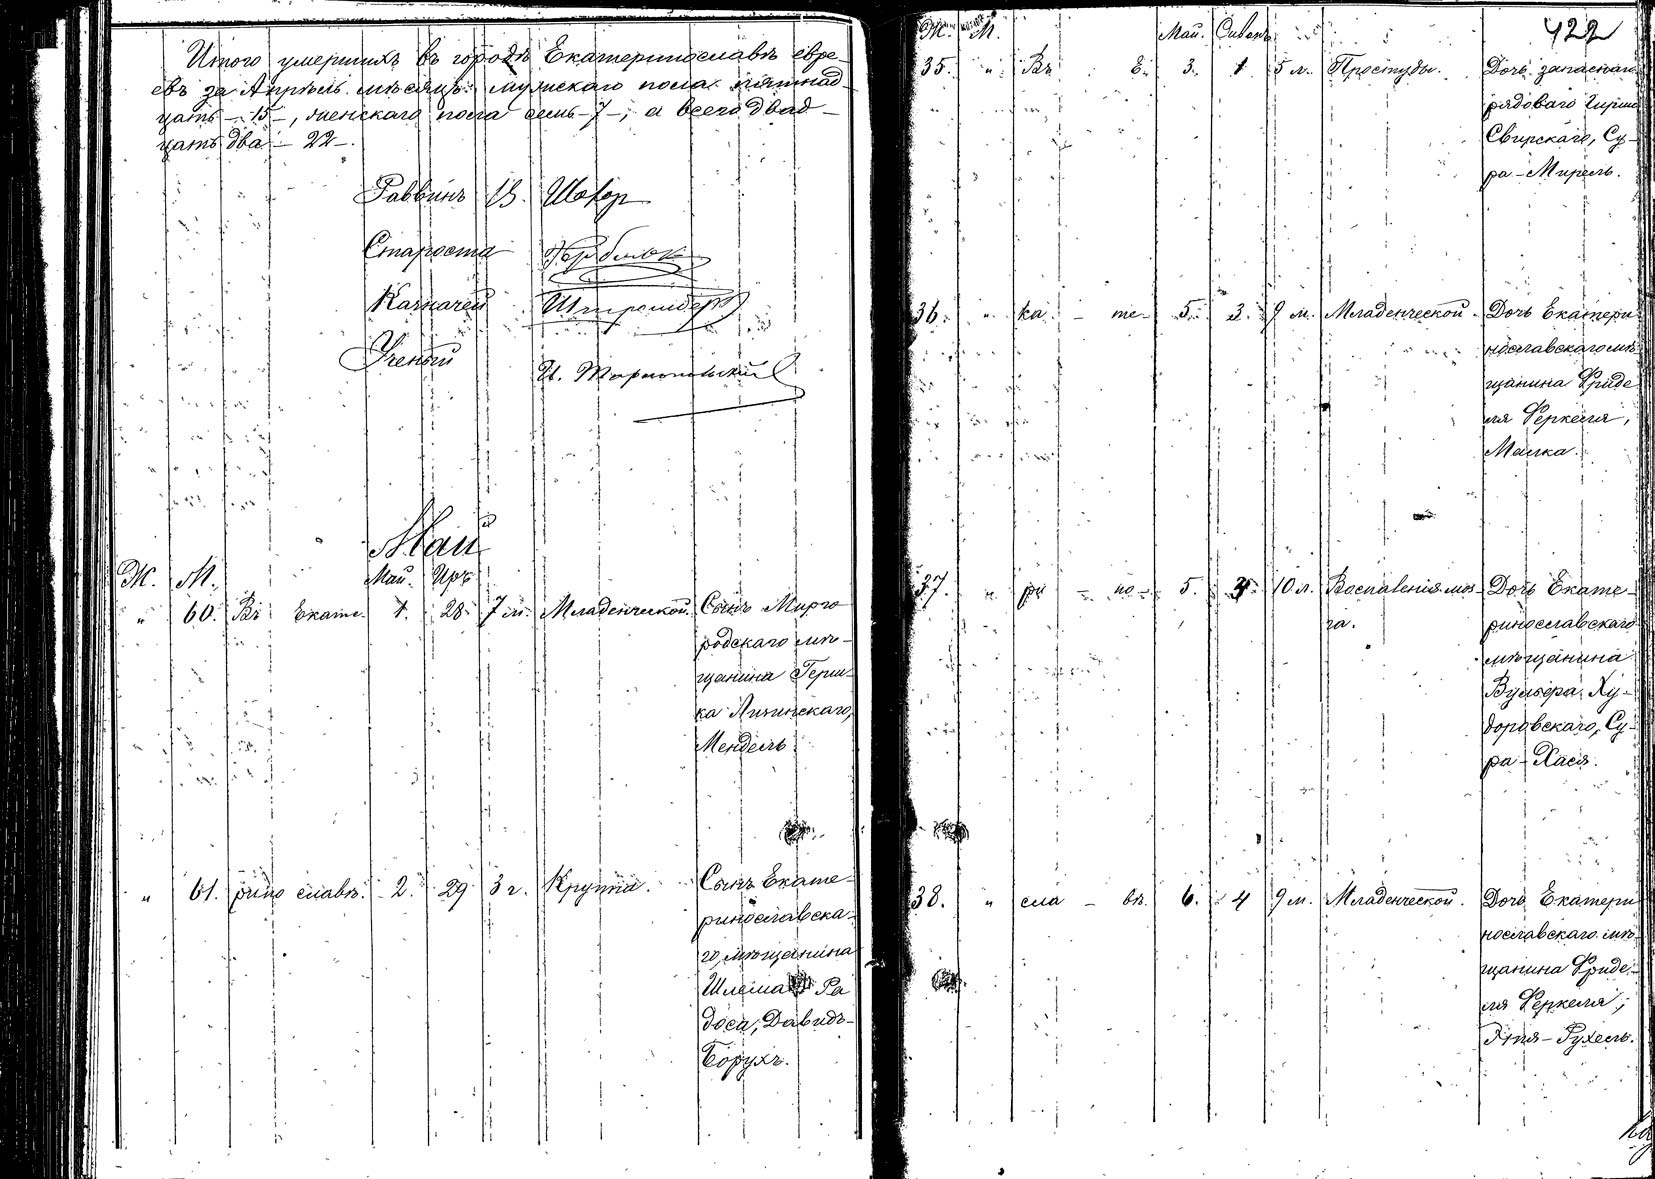 Итого умершихъ въ городѣ Екатеринославѣ евре-
евъ за Апрѣль мѣсяцъ: мужскаго пола пятнад-
цать – 15 –, женскаго пола семь – 7 –, а всего двад-
цать два – 22 –.
Раввинъ В. Шохор
Староста
Казначей
Ученый
Май
Ж. М. Май. Іръ
„ 60. Въ Екате- 1. 28. 7 м. Младенческой. Сынъ Мирго-
родскаго мѣ-
щанина Герш-
ка
Мендель.
„ 61. рино славѣ. 2. 29 3 г. Крупа. Сынъ Екате-
ринославска-
го мѣщанина
Шлема Ра
доса, Давидъ-
Борухъ.
422
Ж. М. Май. Сиванъ
35. „ Въ Е- 3. 1 5 л. Простуды. Дочь запаснаго
рядоваго Гирша
Свирскаго, Су-
ра-Мирель.
36. „ ка – те- 5. 3. 9 м. Младенческой. Дочь Екатери
нославскаго мѣ-
щанина Фриде
ля Феркеля,
Малка.
37. „ ри – но- 5. 3. 10 л. Воспаленія моз-
га.
Дочь Екате-
ринославскаго
мѣщанина
Вульфа Ху-
доровскаго, Су-
ра-Хася.
38. „ сла – вѣ. 6. 4 9 м. Младенческой. Дочь Екатери
нославскаго мѣ-
щанина Фриде-
ля Феркеля,
Рухель.